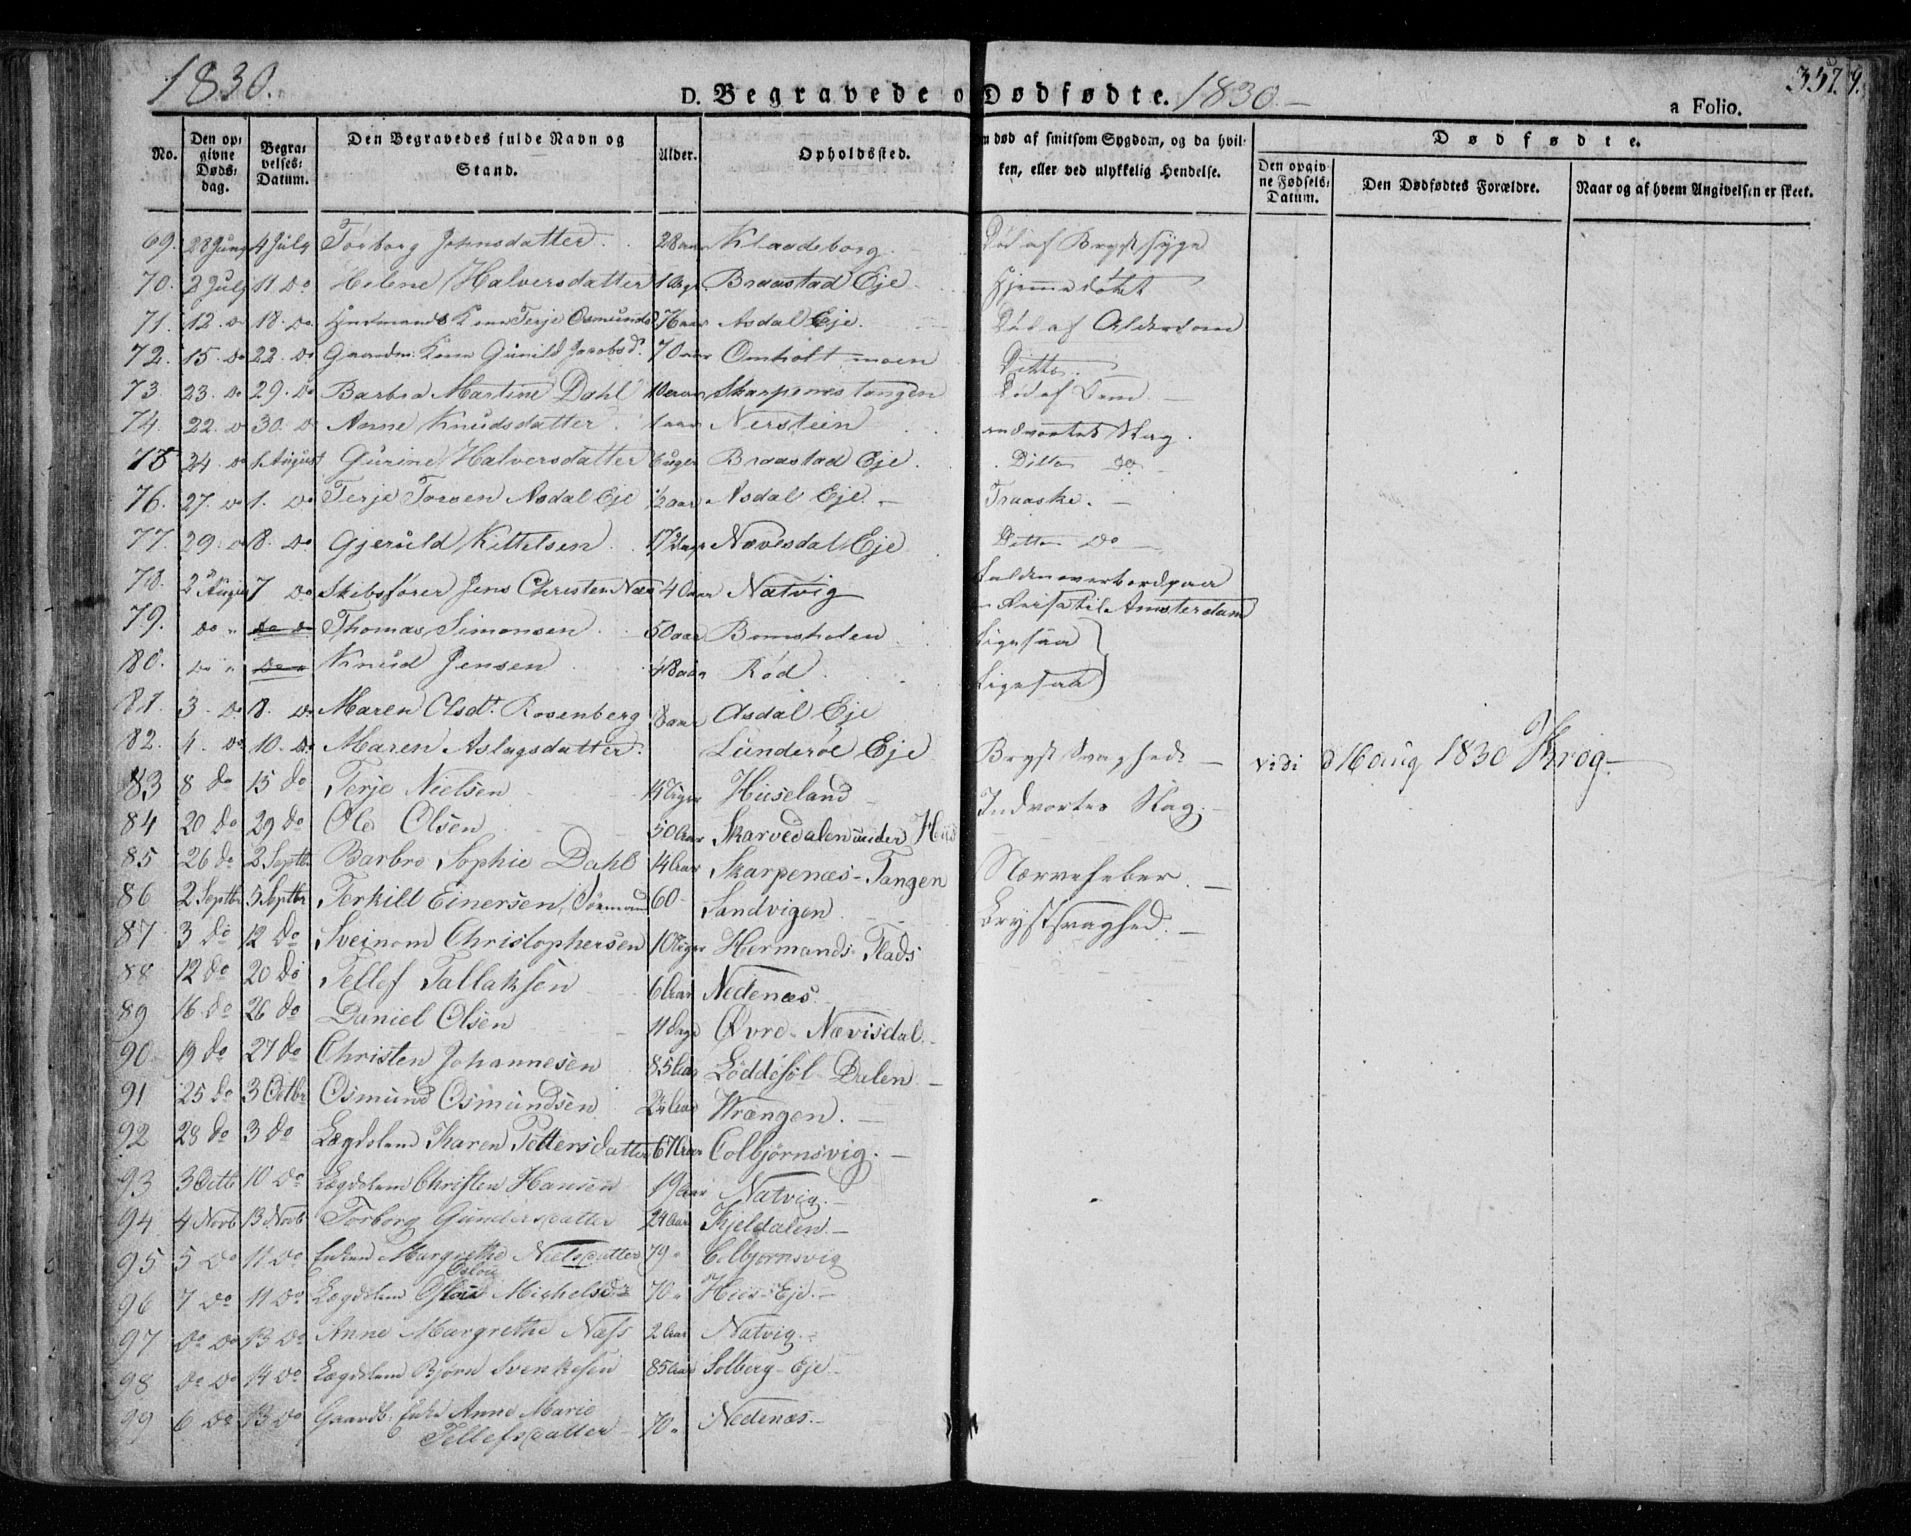 1830. D. Begravede o Dødfødte. 1830.— a Folio. 357.
No. Den op: givne Døds: dag. Begra: velses: Datum. Den Begravedes fulde Navn og Stand. Alder. Opholdssted. død af smitsom Sygdom, og da hvil: ken, eller ved ulykkelig Hendelse. Dødfødte.
Den opgiv: ne Fødsels: Datum. Den Dødfødtes Forældre. Naar og af hvem Angivelsen er skeet.
69. 28 Juny 4 July Torborg Johnsdatter. 28 aar Klaadeborg. Død af Brystsyge
70. 2 July 11 Do Helene Halversdatter Braastad Eje. Hjemmedøbt
71. 12. Do 18. Do Huusmands Kone Terje Osmunds 76 aar Asdal Eje. Død af Alderdom
72. 15. Do 22. Do Gaardm: Kone Gunild Jacobsd. 70 aar Omholt moen Ditto.
73 23. Do 29. Do Barbra Martine Dahl 10 aar Skarpenæs tangen Død af
74. 22. Do 30. Do Anne Knudsdatter. 1 aar Nerstein indvortes Slag.
75 24. Do 1. August Gurine Halversdatter 6 uger Braastad Eje. Ditto Do
76. 27. Do 1. Do Terje Asdal Eje 1/2 aar Asdal Eje. — Traaske. —
77. 29. Do 8. Do Gjeruld Kittelsen. Nævesdal Eje Ditto Do —
78. 2 August 7 Do Skibsfører Jens Christen Næs 40 aar Natvig falden overbord paa
Reisa til Amsterdam
79. Do " Do Do Thomas Simonsen. 50 aar Bomsholen Ligesaa
80. Do " Do Knud Jensen 48 aar Rød. Ligesaa
81. 3 Do 8. Do Maren Olsdr. Rosenberg 8 aar Asdal Eje
82. 4. Do 10. Do Maren Aslagsdatter. Lunderøe Eje Bryst Svaghed. — vidi d 16 aug 1830 Krog—
83 8 do 15 do Terje Nielsen Huseland Indvortes Slag. —
84 20 do 29 do Ole Olsen 50 Aar Skarvedalen under
85 26 do 2 Septbr Barbro Sophie Dahl 14 Aar Skarpenæs-Tangen Nærvefeber. —
86 2 Septbr 5 Septbr Terkild Einersen, 60 Sandvigen Brystsvaghed. —
87 3 do 12 do Sveinom Christophersen 10 Uger Hermands-Plads
88 12 do 20 do Tellef Tallaksen 6 Aar Nedenæs.
89 16 do 26 do Daniel Olsen 11 dage Øvre-Nævisdal.
90 19 do 27 do Christen Johannesen 85 Aar Løddesøl-Dalen —
91 25 do 3 Octbr Osmund Osmundsen Aar Wrængen. —
92 28 do 3 do Lægdslem Karen Pettersdatter 67 Aar Colbjørnsvig. —
93 3 Octb 10 Do Lægdslem Christen Hansen 19 Aar Natvig. —
94 4 Novb 13 Novb Torborg Gundersdatter 24 Aar Kjeldalen —
95 5 Do 11 Do Enken Margrethe Nielsdatter 79 " Colbjørnsvig
96 7 Do 11 Do Lægdslem Michelsdr 70 " Hiis-Eje. —
97 Do Do 13 Do Anne Margrethe Næss 2 Aar Natvig. —
98 Do Do 14 Do Lægdslem Bjørn Svenkesen 85 Aar Solberg-Eje. —
99 6 Do 13 Do Gaardb. Enke Anne Marie
Tellefsdatter 70 " Nedenæs. —